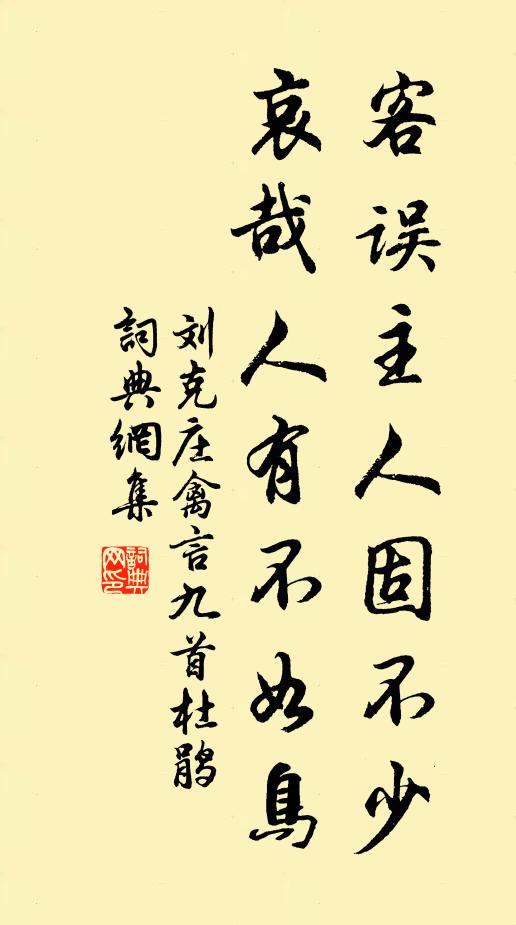 客误主人固不少
哀哉人有不如鳥
刘克庄禽言九首杜鹃
詞典網集
詞典网印